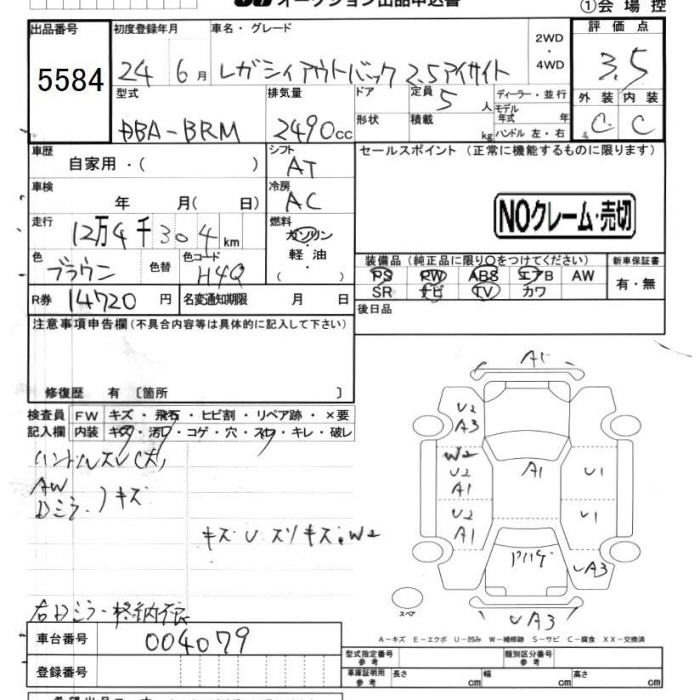 オークション出品申込書
①会場控
出品番号 初度登録年月 車名・グレード 2WD・4WD 評価点
5584 24年6月 レガシィアウトバック 2.5アイサイト 3.5
型式 排気量 ドア 定員 5人 ディーラー・並行 外装 内装
モデル年式 年
DBA-BRM 2490cc 形状 積載 kg ハンドル 左・右 C C
車歴 シフト セールスポイント (正常に機能するものに限ります)
自家用・( ) AT
車検 冷房
年 月( 日) AC
NOクレーム・売切
走行 燃料
12万4千304km ガソリン
軽油
( )
色 色替 色コード
ブラウン H4Q
装備品(純正品に限り○をつけてください) 新車保証書
PS PW ABS エアB AW 有・無
SR ナビ TV カワ
R券 14720円 名変通知期限 月 日
後日品
注意事項申告欄(不具合内容等は具体的に記入して下さい)
修復歴 有〔箇所 〕
検査員 FW キズ・飛石・ヒビ割・リペア跡・×要
記入欄 内装 キズ・汚レ・コゲ・穴・スレ・キレ・破レ
ハンドルスレ(大)
AW
Dミラー)キズ
キズ U スリキズ W2
右Dミラー格納不良
A1
U2
A3
W2
U2
A1
A1
U1
U2
A1
U1
UA3
スペア
UA3
A−キズ E−エクボ U−凹み W−補修跡 S−サビ C−腐食 XX−交換済
車台番号 004079
登録番号
型式指定番号 参考 類別区分番号 参考
車庫証明用 参考 長さ cm 幅 cm 高さ cm